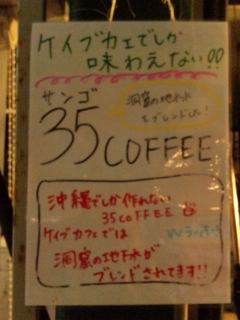 ケイブカフェでしか
味わえない!!
サンゴ
35 COFFEE
洞窟の地下水
をブレンドした!
沖縄でしか作れない
35 COFFEE
ケイブカフェでは
Wラッキー
洞窟の地下水が
ブレンドされてます!!